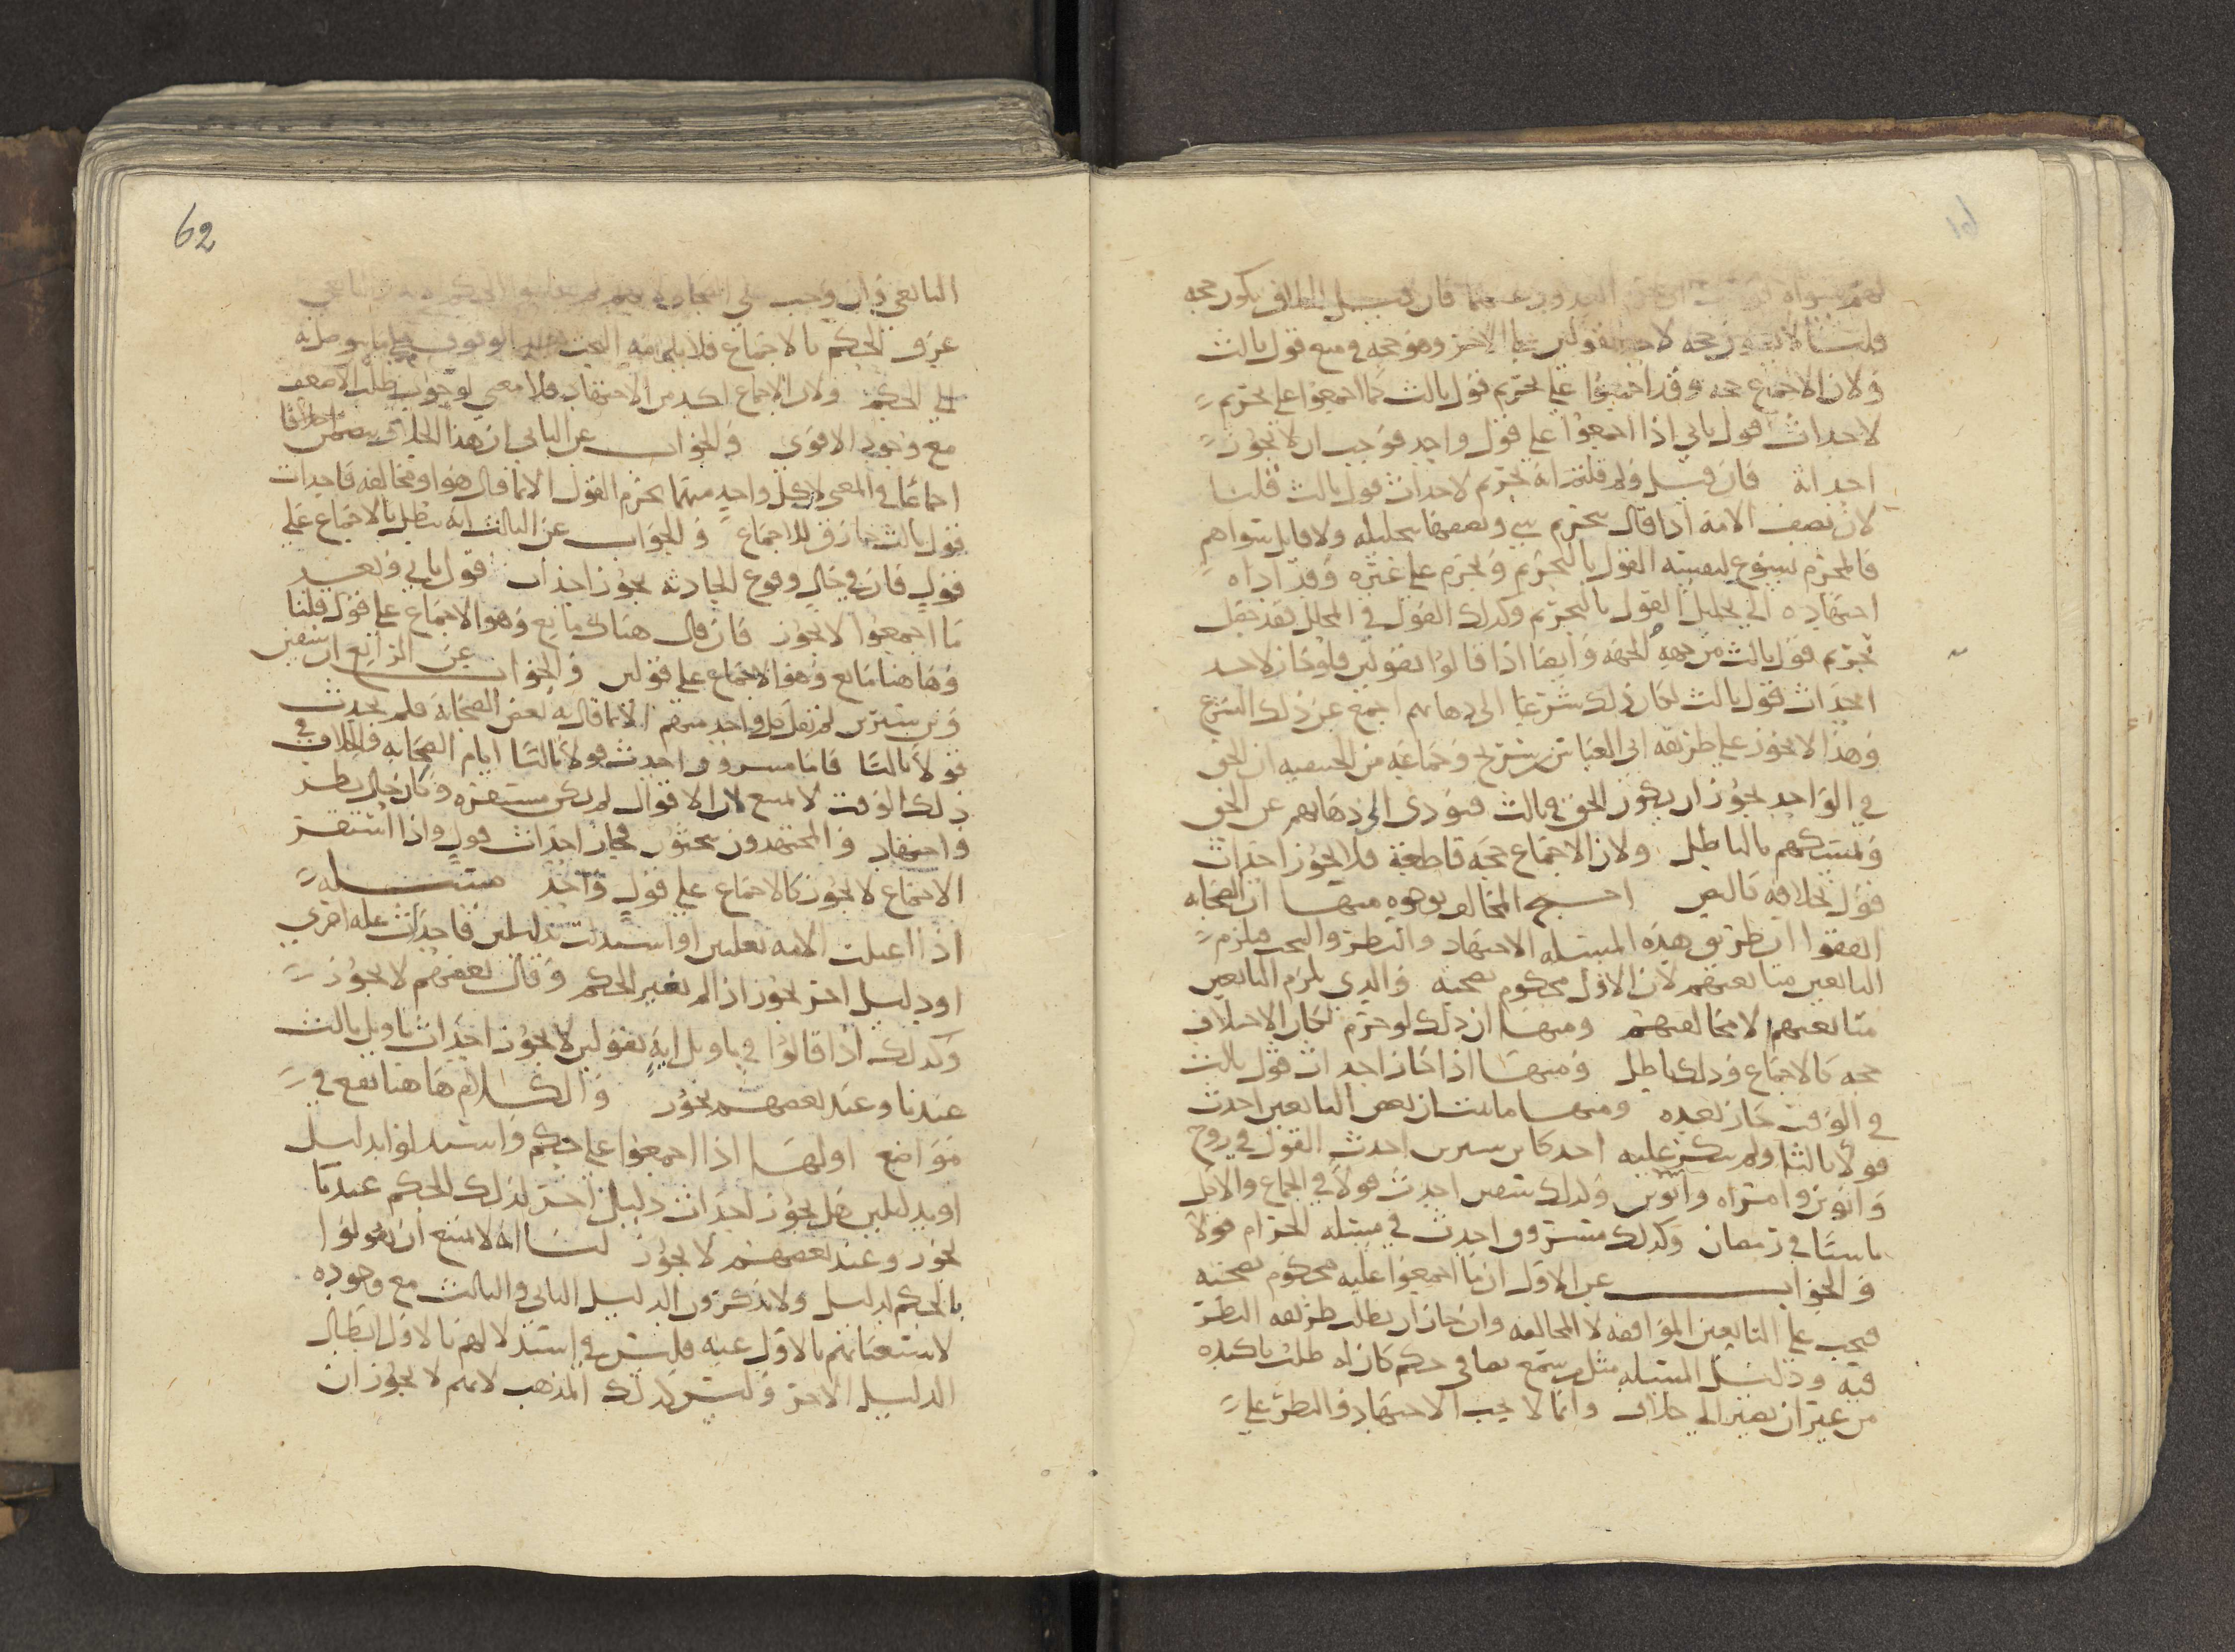 فان قيل الخلاف يكون حجه
قلنا لا يكون حجه لاحد القولين على الاخر وهو حجه في منع قول ثالث
ولان الاجماع حجه وقد اجمعوا على تحريم قول ثالث كما اجمعوا على تحريم
لاحداث قول ثاني اذا اجمعوا على قول واحد فوجب ان لا يجوز
احداثه فان قيل ولم قلتم انه تحريم لاحداث قول ثالث قلنا
لان نصف الامة اذا قال بتحريم شي ونصفها بتحليله ولا قايل سواهم
فالمحرم يسوغ لنفسه القول بالتحريم ويحرم على غيره وقد اداه
اجتهاده الى تحليل القول بالتحريم وكذلك القول في المحلل فقد حصل
تحريم قول ثالث من جهه الجهه وايضا اذا قالوا بقولين فلو جاز لاحد
احداث قول ثالث لكان ذلك شرعا الى ذهابهم اجمع عن ذلك الشرع
وهذا لا يجوز على طريقه ابي العباس بن شريح وجماعه من الحنفيه ان الحق
في الواحد يجوز ان يكون الحق في ثالث فيودي الى ذهابهم عن الحق
وتمسكهم بالباطل ولان الاجماع حجه قاطعة فلا يجوز احداث
قول بخلافه كالنص احتج المخالف بوجوه منها ان الصحابه
اتفقوا ان طريق هذه المسئله الاجتهاد والنظر والبحث فيلزم
التابعين متابعتهم لان الاول محكوم بصحته والذي يلزم التابعين
متابعتهم لا مخالفتهم ومنها ان ذلك لو حرم لكان الاختلاف
حجه كالاجماع وذلك باطل ومنها اذا جاز احداث قول ثالث
في الوقت جاز بعده ومنها ما بينا ان بعض التابعين احدث
قولا ثالثا ولم ينكر عليه احد كابن سيرين احدث القول في زوج
وابوين وامراه وابوين وكذلك سفين احدث قولا في الجماع والاكل
ناسيا في رمضان وكذلك مسروق احدث في مسئله الحرام قولا
والجواب عن الاول ان ما اجمعوا عليه محكوم بصحته
فيجب على التابعين الموافقه لا المخالفه وان جاز ان يطلب طريقه النظر
فيه ودليل المسئله مثل من سمع نصا في حكم كان له طلب تاكيده
من غير ان يصير الى خلافه وانما لا يجب الاجتهاد والنظر على
62
التابعي وان وجب على الصحابه
عرف الحكم بالاجماع فلا يلزمه البحث بعد الوقوف على ما يوصله
الى الحكم ولان الاجماع اكد من الاجتهاد فلا معنى لوجوب طلب الاضعف
مع وجود الاقوى والجواب عن الثاني ان هذا الخلاف يتضمن
اجماعا في المعنى لان كل واحد منهما يحرم القول الا بما قال هو او مخالفه فاحداث
قول ثالث خارق للاجماع والجواب عن الثالث انه يبطل بالاجماع على
قول فان في حال وقوع الحادثه يجوز احداث قول ثاني وبعد
ما اجمعوا لا يجوز فان قال هناك مانع وهو الاجماع على قول قلنا
وهاهنا مانع وهو الاجماع على قولين والجواب عن الرابع ان سفين
وبن سيرين لم يقل كل واحد منهم الا بما قال به بعض الصحابه فلم يحدث
قولا ثالثا فاما مسروق احدث قولا ثالثا ايام الصحابه والخلاف في
ذلك الوقت لا يمنع لان الاقوال لم تكن مستقره وكان حال نظر
واجتهاد والمجتهدون يبحثون فجاز احداث قول واذا استقر
الاجماع لا يجوز كالاجماع على قول واحد مسئله
اذا اعتلت الامه بعلتين او استدلت بدليلين فاحداث عله اخرى
او دليل اخر يجوز اذا لم يغير الحكم وقال بعضهم لا يجوز
وكذلك اذا قالوا في تاويل ايه بقولين لا يجوز احداث تاويل ثالث
عندنا وعند بعضهم يجوز والكلام هاهنا يقع في
مواضع اولها اذا اجمعوا على حكم واستدلوا بدليل
او بدليلين هل يجوز احداث دليل اخر لذلك الحكم عندنا
يجوز وعند بعضهم لا يجوز لنا انه لا يمنع ان يقولوا
بالحكم لدليل ولا يذكرون الدليل الثاني والثالث مع وجوده
لاستغنائهم بالاول عنه فليس في استدلالهم بالاول ابطال
الدليل الاخر وليس كذلك المذهب لانهم لا يجوز ان